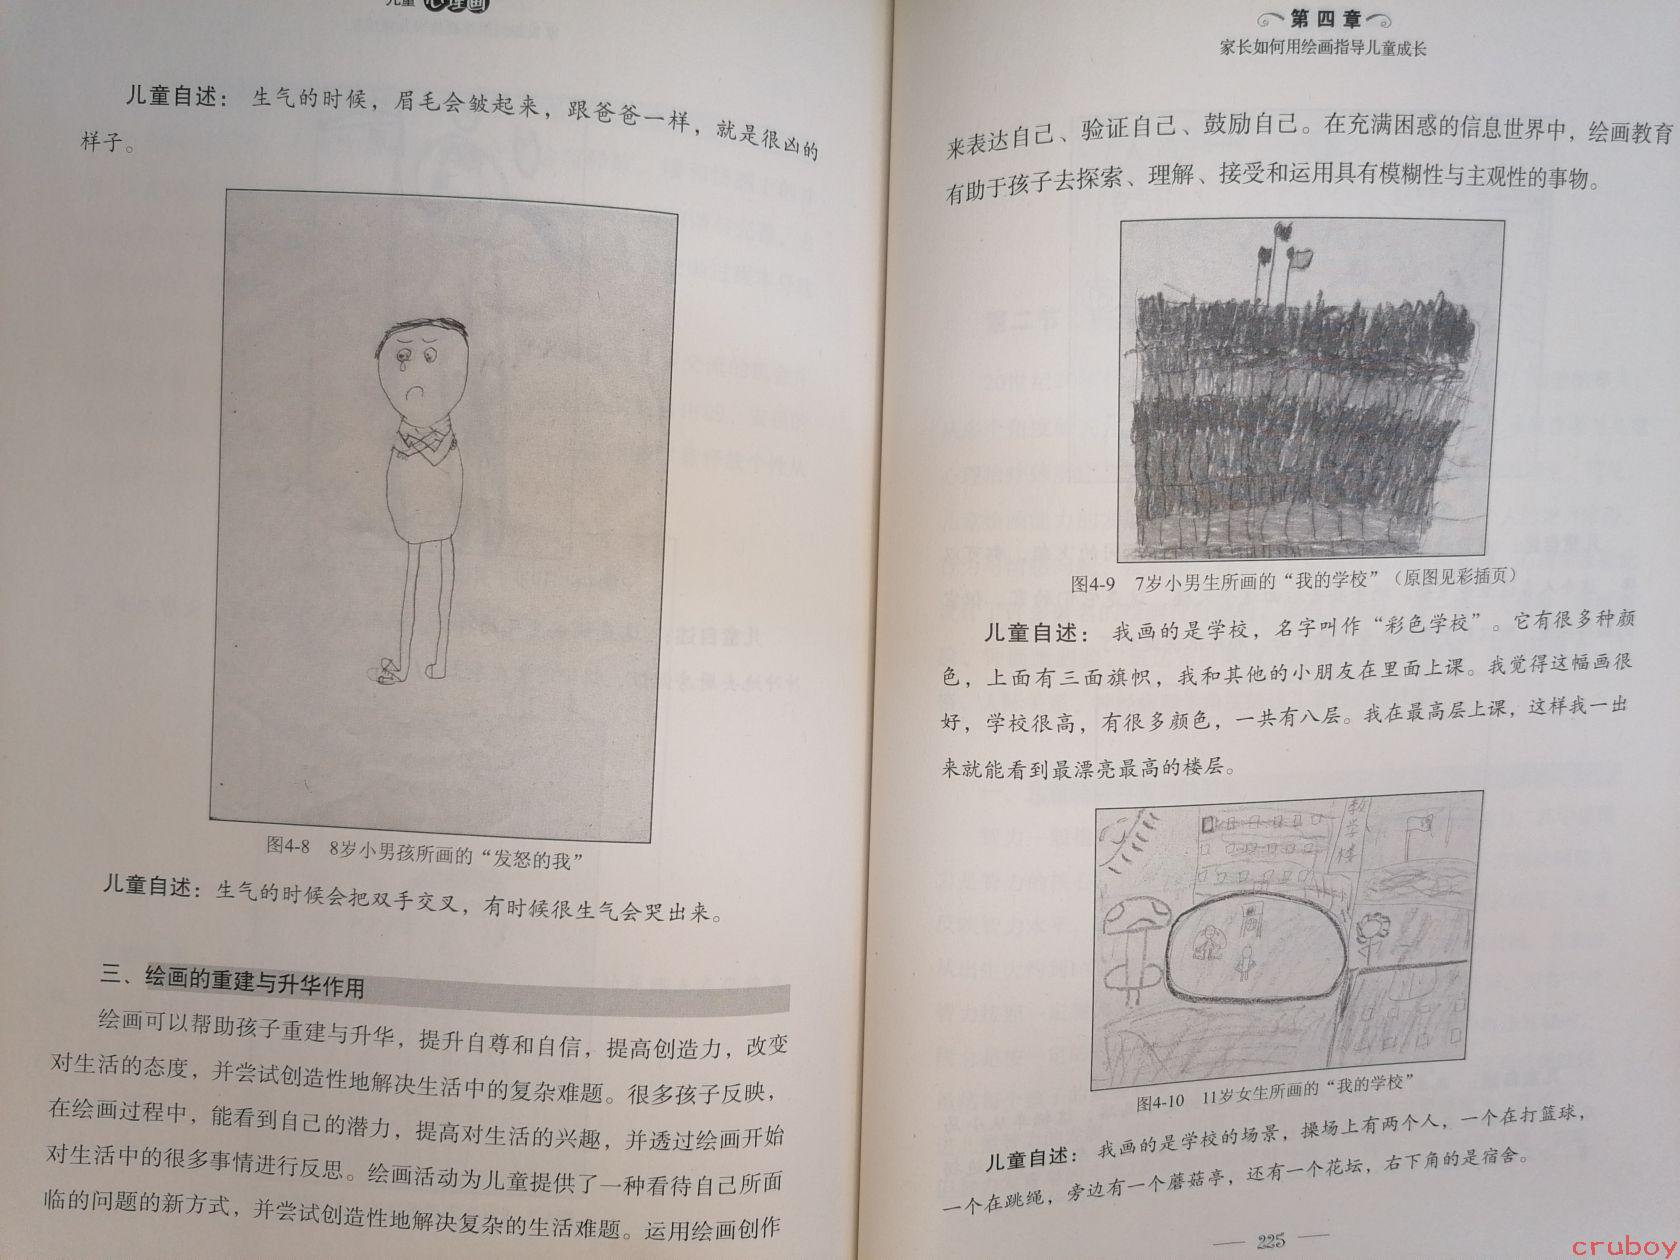 儿童心理画
儿童自述： 生气的时候，眉毛会皱起来，跟爸爸一样，就是很凶的
样子。
图4-8 8岁小男孩所画的“发怒的我”
儿童自述：生气的时候会把双手交叉，有时候很生气会哭出来。
三、绘画的重建与升华作用
绘画可以帮助孩子重建与升华，提升自尊和自信，提高创造力，改变
对生活的态度，并尝试创造性地解决生活中的复杂难题。很多孩子反映，
在绘画过程中，能看到自己的潜力，提高对生活的兴趣，并透过绘画开始
对生活中的很多事情进行反思。绘画活动为儿童提供了一种看待自己所面
临的问题的新方式，并尝试创造性地解决复杂的生活难题。运用绘画创作
第四章
家长如何用绘画指导儿童成长
来表达自己、验证自己、鼓励自己。在充满困惑的信息世界中，绘画教育
有助于孩子去探索、理解、接受和运用具有模糊性与主观性的事物。
图4-9 7岁小男生所画的“我的学校”（原图见彩插页）
儿童自述： 我画的是学校，名字叫作“彩色学校”。它有很多种颜
色，上面有三面旗帜，我和其他的小朋友在里面上课。我觉得这幅画很
好，学校很高，有很多颜色，一共有八层。我在最高层上课，这样我一出
来就能看到最漂亮最高的楼层。
教学楼
图4-10 11岁女生所画的“我的学校”
儿童自述： 我画的是学校的场景，操场上有两个人，一个在打篮球，
一个在跳绳，旁边有一个蘑菇亭，还有一个花坛，右下角的是宿舍。
225
cruboy